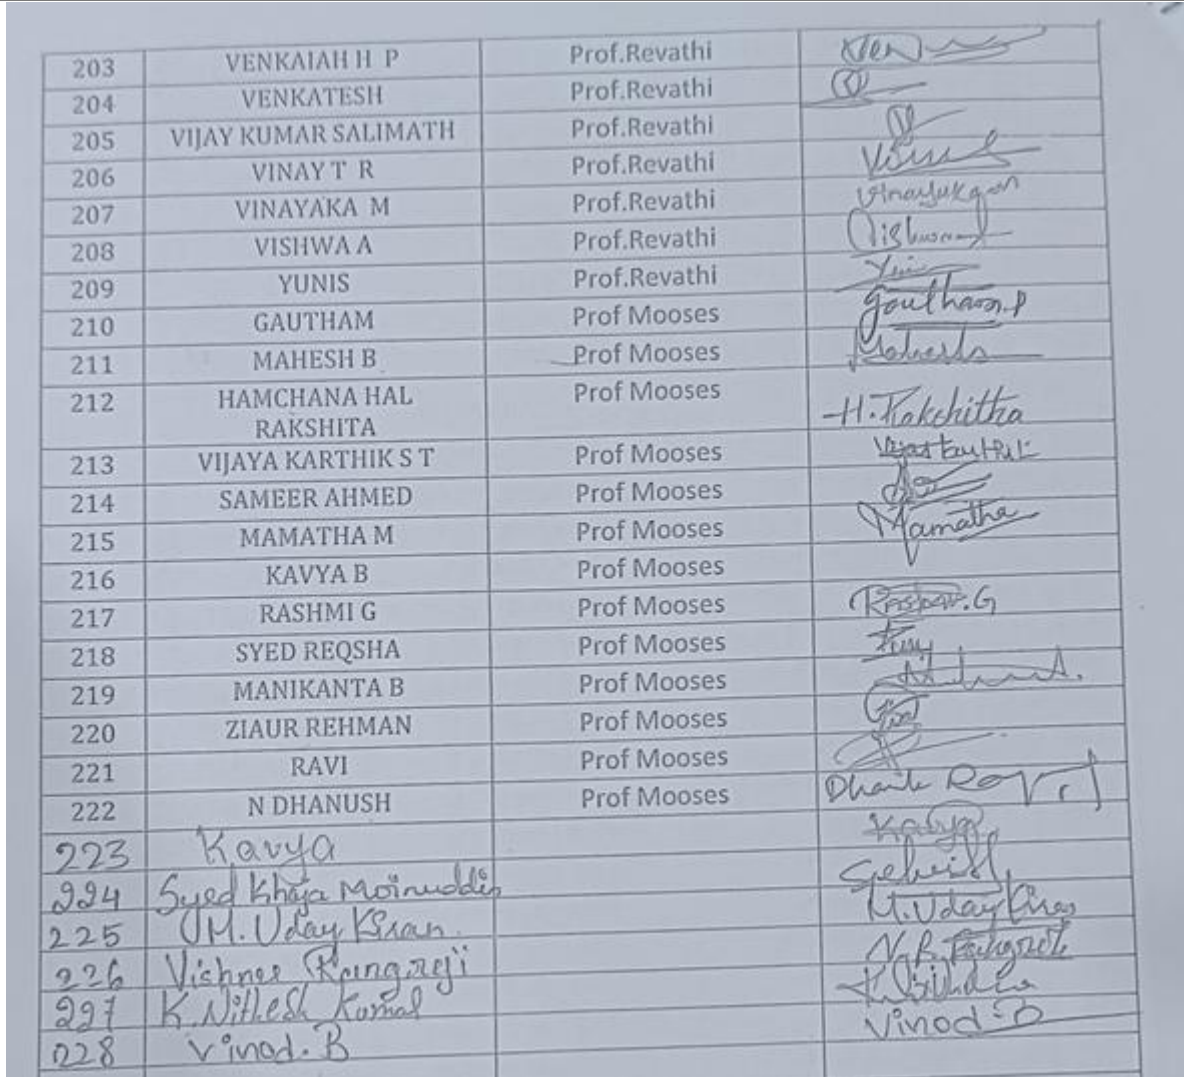 203 VENKAIAH H P Prof.Revathi Ven
204 VENKATESH Prof.Revathi
205 VIJAY KUMAR SALIMATH Prof.Revathi
206 VINAY T R Prof.Revathi
207 VINAYAKA M Prof.Revathi
208 VISHWA A Prof.Revathi
209 YUNIS Prof.Revathi
210 GAUTHAM Prof Mooses Goutham.P
211 MAHESH B Prof Mooses Mahesh
212 HAMCHANA HAL Prof Mooses H.Rakshitha
RAKSHITA
213 VIJAYA KARTHIK S T Prof Mooses
214 SAMEER AHMED Prof Mooses
215 MAMATHA M Prof Mooses Mamatha
216 KAVYA B Prof Mooses
217 RASHMI G Prof Mooses
218 SYED REQSHA Prof Mooses
219 MANIKANTA B Prof Mooses
220 ZIAUR REHMAN Prof Mooses
221 RAVI Prof Mooses
222 N DHANUSH Prof Mooses
223 Kavya Kavya
224 Syed Khaja Moinuddin
225 M. Uday Kiran. M.Uday Kiran
226 Vishnee
227 K.Nithesh Kamal
228 Vinod.B Vinod.B